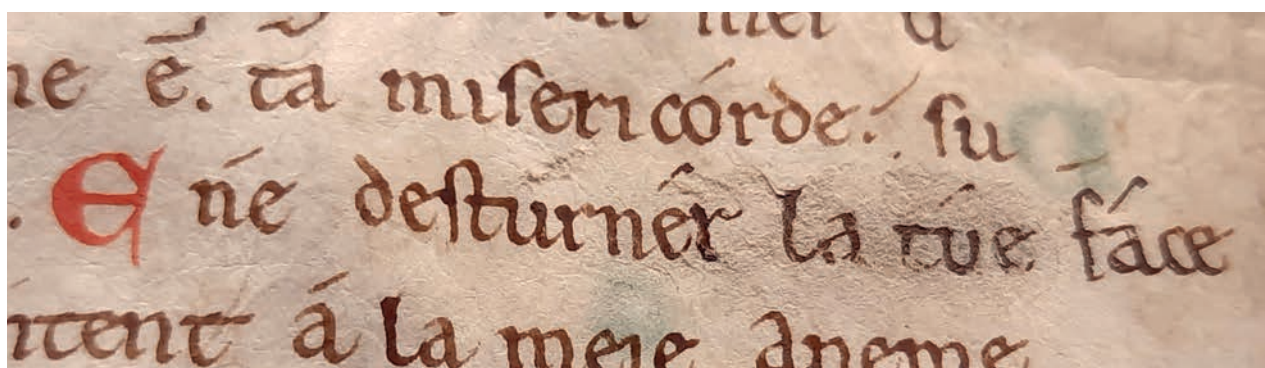 ne ē. ta misericórde. su
E né desturnér la túe fáce
ntent á la meie aneme